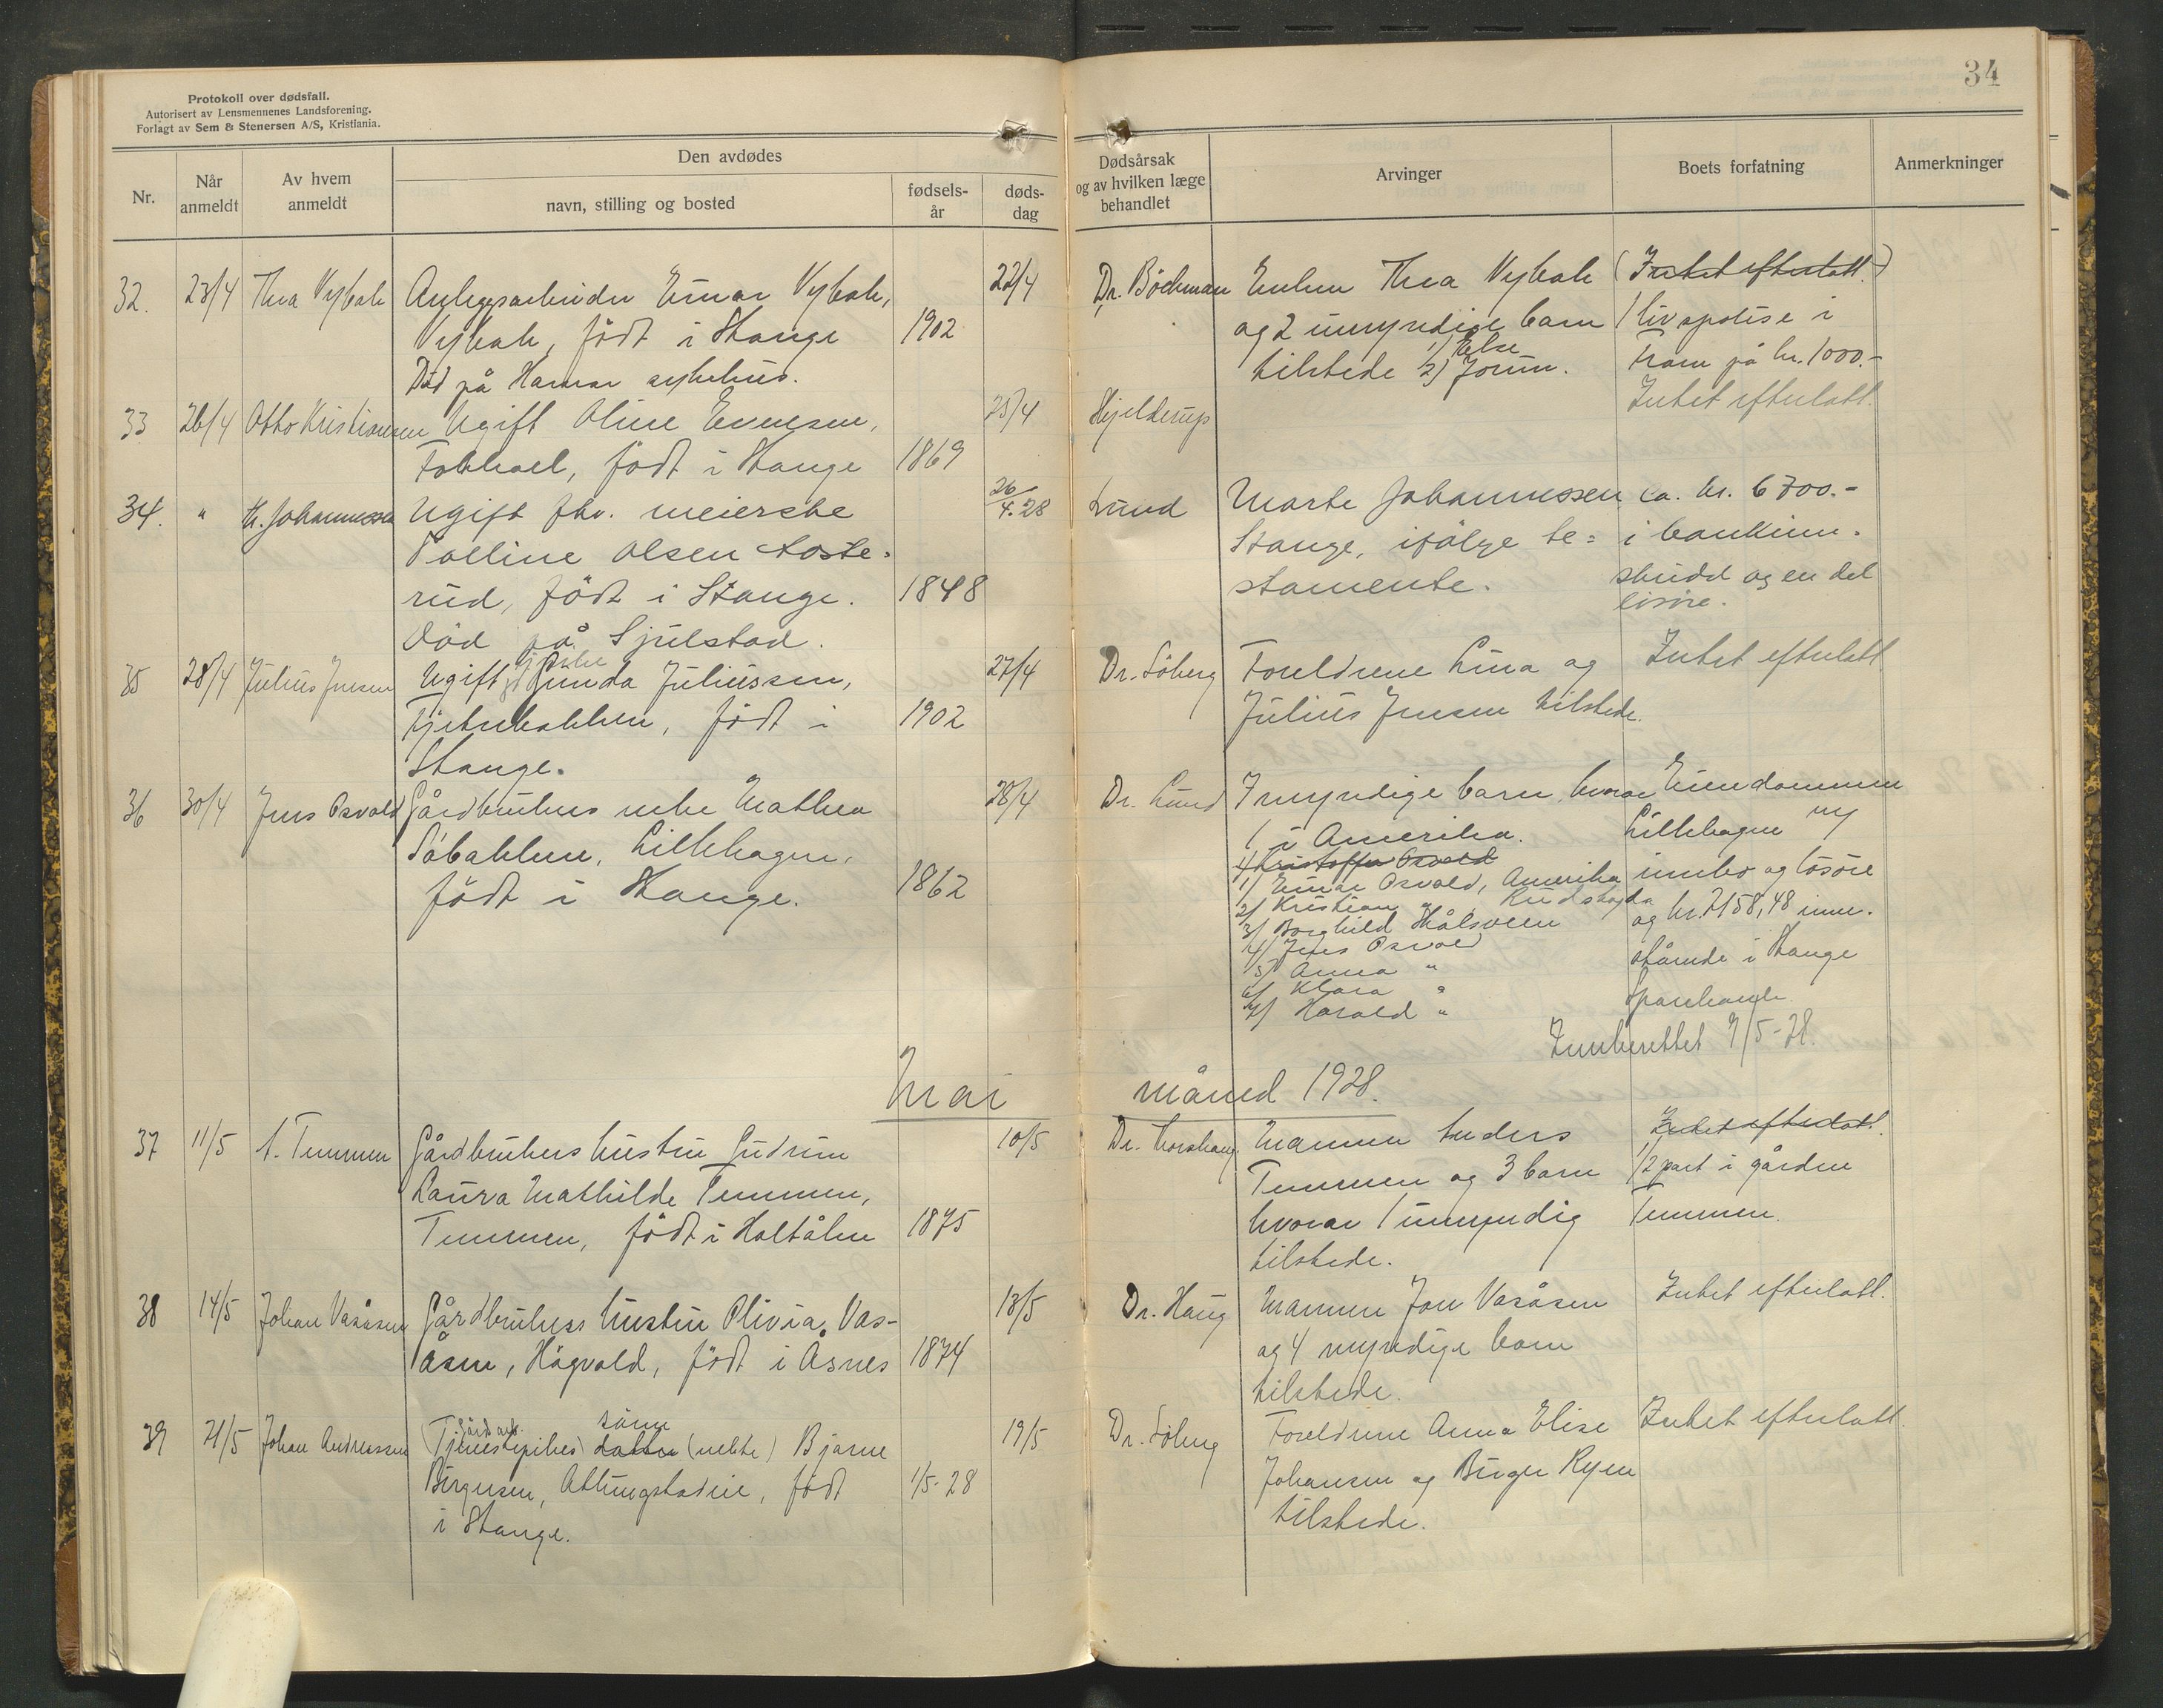 Protokoll over dødsfall.
Autorisert av Lensmennenes Landsforening.
Forlagt av Sem & Stenersen A/S, Kristiania.
34
Nr.
Når anmeldt
Av hvem anmeldt
Den avdødes
navn, stilling og bosted
fødsels-år
døds-dag
Dødsårsak og av hvilken læge behandlet
Arvinger
Boets forfatning
Anmerkninger
32. 23/4 Thea Vybak Anleggsarbeider Einar Vybak, 22/4
Vybak, født i Stange 1902
Død på Hamar sykehus.
Dr. Böchman Enken Thea Vybak (Intet efterlatt.)
og 2 umyndige barn 1 livspolise i
1) Else
tilstede 2) Jorun. Fram på kr. 1000.-
33 26/4 Otto Kristiansen Ugift Oline Evensen, 25/4
født i Stange 1869
Hjelderup Intet efterlatt.
34. " Johannessen Ugift fhv. meierske 26/4.28
Olsen Loste-
rud, født i Stange. 1848
Død på Sjulstad.
Lund Marte Johannessen ca. kr. 6700.-
Stange, ifölge te= i bankinn-
stamente. skudd og en del
lösöre.
35 28/4 Julius Jensen Ugift Gunda Juliussen, 27/4
født i 1902
Stange.
Dr. Söberg Foreldrene Lina og Intet efterlatt
Julius Jensen tilstede.
36 30/4 Jens Osvold Gårdbrukers enke Mathea 28/4
Såbakken, Lillehagen,
født i Stange. 1862
Dr. Lund 7 myndige barn, hvorav Eiendommen
1 i Amerika. Lillehagen
4) Kristoffer Osvold
1) Einar Osvold, Amerika innbo og lösöre
2) Kristian " Rudshøgda
3) Borghild Skålsveen og kr. 7158,48 inne-
4) Jens Osvold
5) Anna " stående i Stange
6) Klara "
7) Harald " Sparebank
Innberettet 7/5-28.
Mai måned 1928.
37 11/5 A. Temmen Gårdbrukers hustru Gudrun 10/5
Laura Mathilde Temmen,
Temmen, født i Holtålen 1875
Dr. Thorshaug Mannen Anders Intet efterlatt.
Temmen og 3 barn 1/2 part i gården
hvorav 1 umyndig Temmen.
tilstede.
38 14/5 Johan Vasåsen Gårdbrukers hustru Olivia Vas- 13/5
åsen, Högvold, født i Åsnes 1874
Dr. Haug Mannen Jon Vasåsen Intet efterlatt.
og 4 myndige barn
tilstede.
39 21/5 Johan Andreassen Gårdarb. sönn
(Tjenestepikes) datter (uekte) Bjarne 19/5
Birgersen, født 1/5-28
i Stange.
Dr. Söberg Foreldrene Anna Elise Intet efterlatt.
Johansen og Birger Ryen
tilstede.